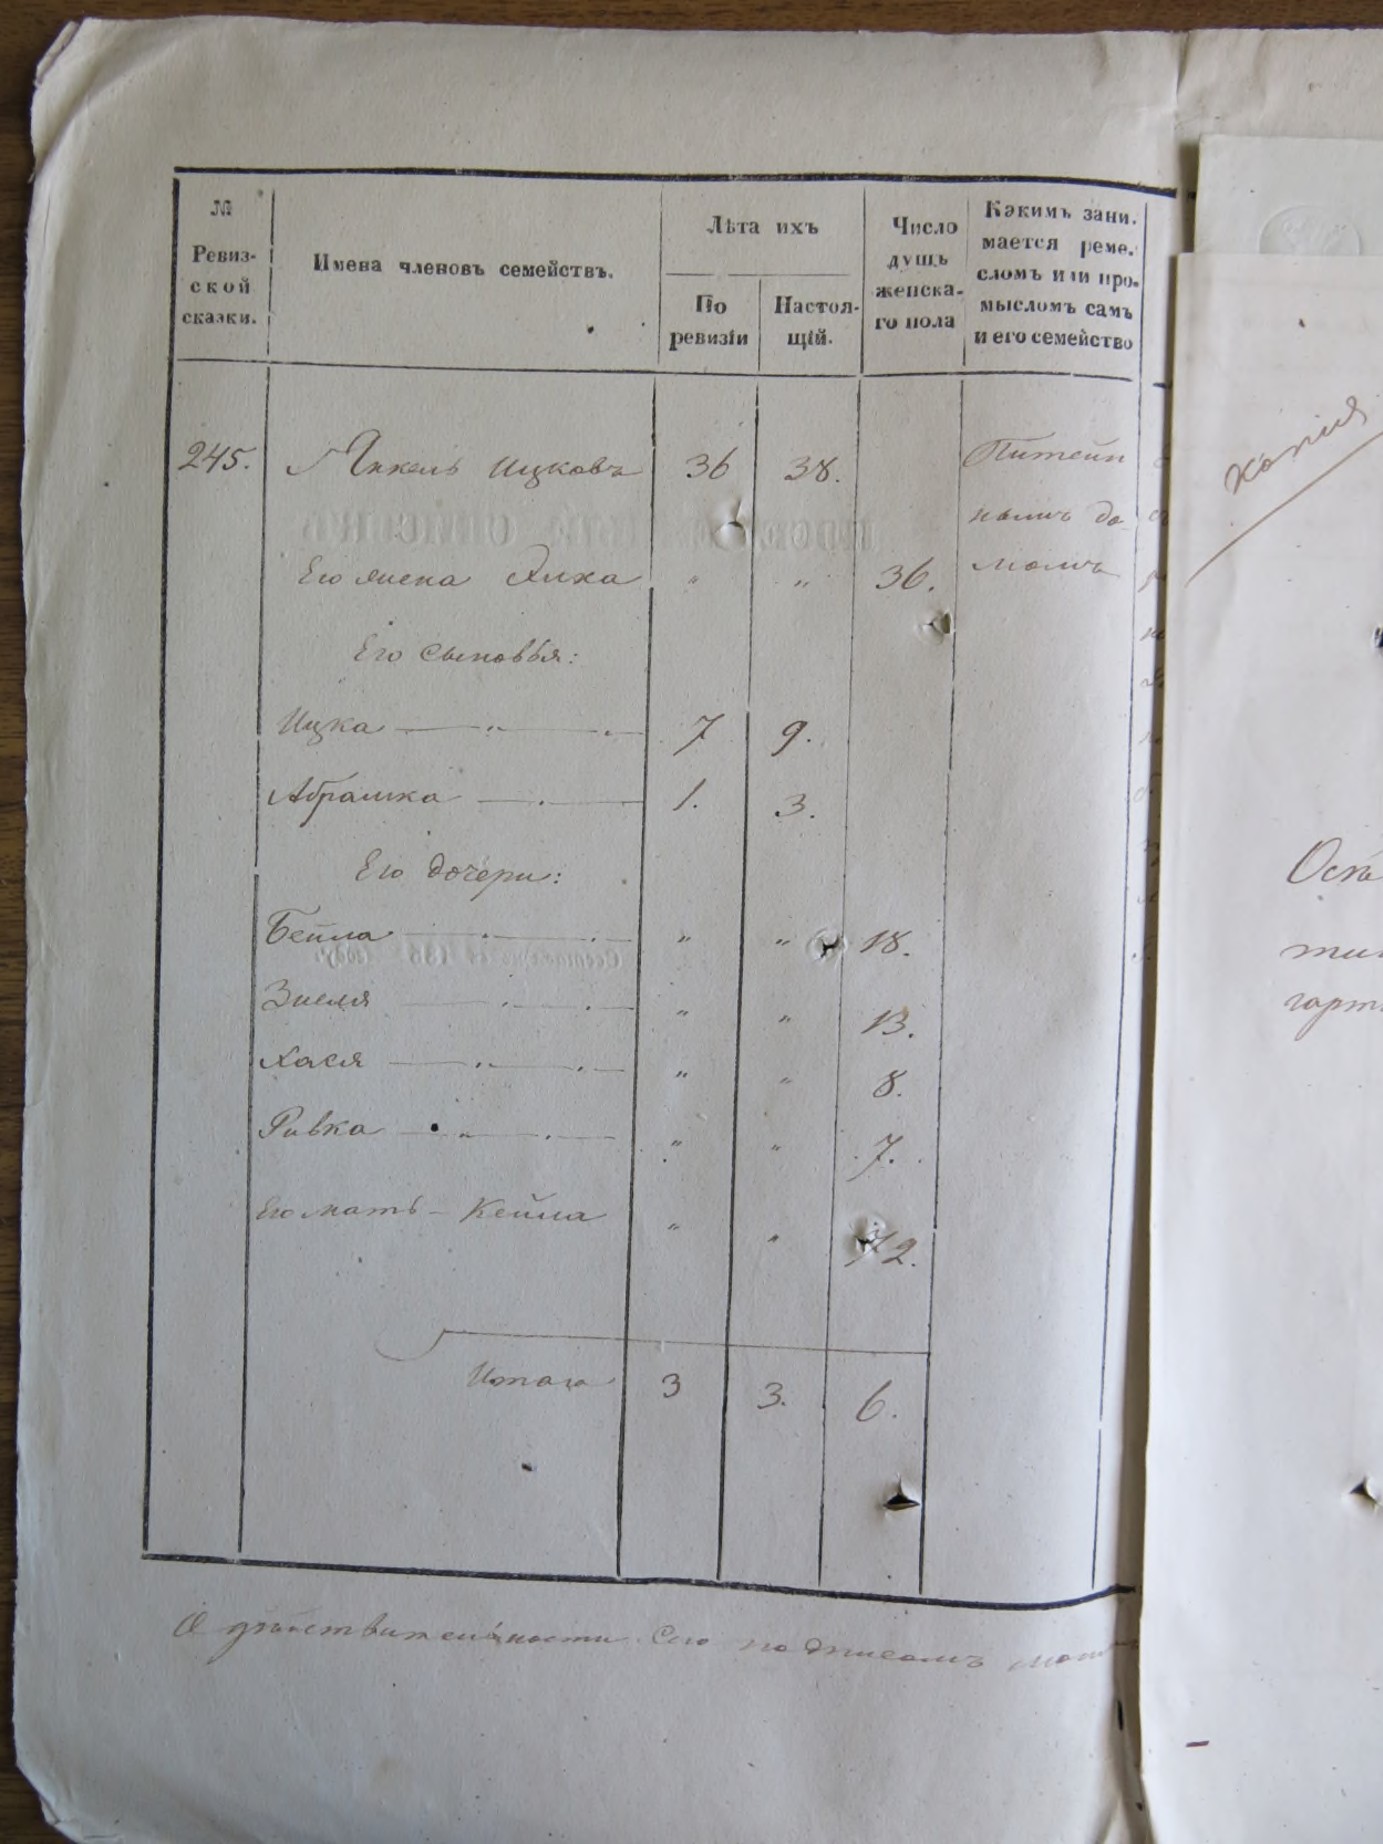 №
Ревиз-
ской
сказки.
Имена членовъ семействъ.
Лѣта ихъ
По
ревизіи
Настоя-
щій.
Число
душъ
женска-
го пола
Какимъ зани.
мается реме.
сломъ или про.
мысломъ самъ
и его семейство
245. Янкель Ицковъ 36 38. Питейн
нымъ до
Его жена Ѳлка " " 36. момъ
Его сыновья:
Ицка — " — . — 7 9.
Абрамка — . — 1. 3.
Его дочери:
Бейла — . — . — " " 18.
Зиеля — . — . — " " 13.
Хася — " — . — " " 8.
Ривка — " — . — " " 7.
Его мать - Кейла " " 72.
Итого 3 3. 6.
О дѣйствительности сего подписомъ
копия